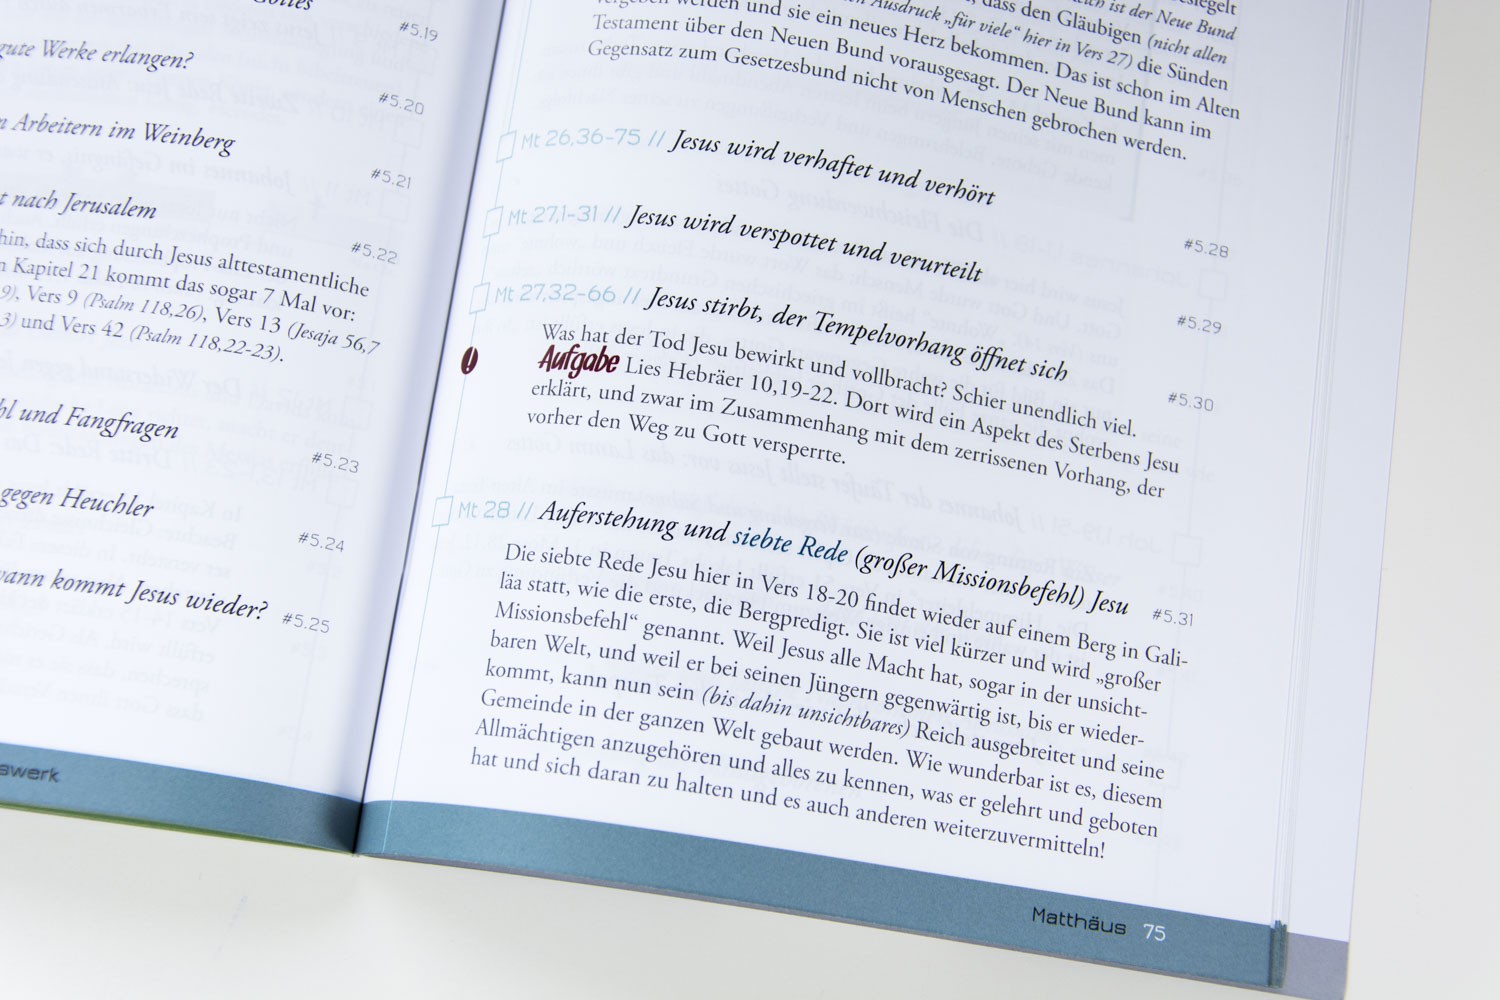 Gottes
#5.19
gute Werke erlangen?
#5.20
n Arbeitern im Weinberg
#5.21
t nach Jerusalem
#5.22
hin, dass sich durch Jesus alttestamentliche
n Kapitel 21 kommt das sogar 7 Mal vor:
9), Vers 9 (Psalm 118,26), Vers 13 (Jesaja 56,7
3) und Vers 42 (Psalm 118,22-23).
hl und Fangfragen
#5.23
gegen Heuchler
#5.24
wann kommt Jesus wieder?
#5.25
swerk
ich ist der Neue Bund
Ausdruck „für viele“ hier in Vers 27) die Sünden
dass den Gläubigen (nicht allen
werden und sie ein neues Herz bekommen. Das ist schon im Alten
Testament über den Neuen Bund vorausgesagt. Der Neue Bund kann im
Gegensatz zum Gesetzesbund nicht von Menschen gebrochen werden.
Mt 26,36-75 // Jesus wird verhaftet und verhört
#5.28
Mt 27,1-31 // Jesus wird verspottet und verurteilt
#5.29
Mt 27,32-66 // Jesus stirbt, der Tempelvorhang öffnet sich
#5.30
Was hat der Tod Jesu bewirkt und vollbracht? Schier unendlich viel.
! Aufgabe Lies Hebräer 10,19-22. Dort wird ein Aspekt des Sterbens Jesu
erklärt, und zwar im Zusammenhang mit dem zerrissenen Vorhang, der
vorher den Weg zu Gott versperrte.
Mt 28 // Auferstehung und siebte Rede (großer Missionsbefehl) Jesu
#5.31
Die siebte Rede Jesu hier in Vers 18-20 findet wieder auf einem Berg in Gali-
läa statt, wie die erste, die Bergpredigt. Sie ist viel kürzer und wird „großer
Missionsbefehl“ genannt. Weil Jesus alle Macht hat, sogar in der unsicht-
baren Welt, und weil er bei seinen Jüngern gegenwärtig ist, bis er wieder-
kommt, kann nun sein (bis dahin unsichtbares) Reich ausgebreitet und seine
Gemeinde in der ganzen Welt gebaut werden. Wie wunderbar ist es, diesem
Allmächtigen anzugehören und alles zu kennen, was er gelehrt und geboten
hat und sich daran zu halten und es auch anderen weiterzuvermitteln!
Matthäus 75